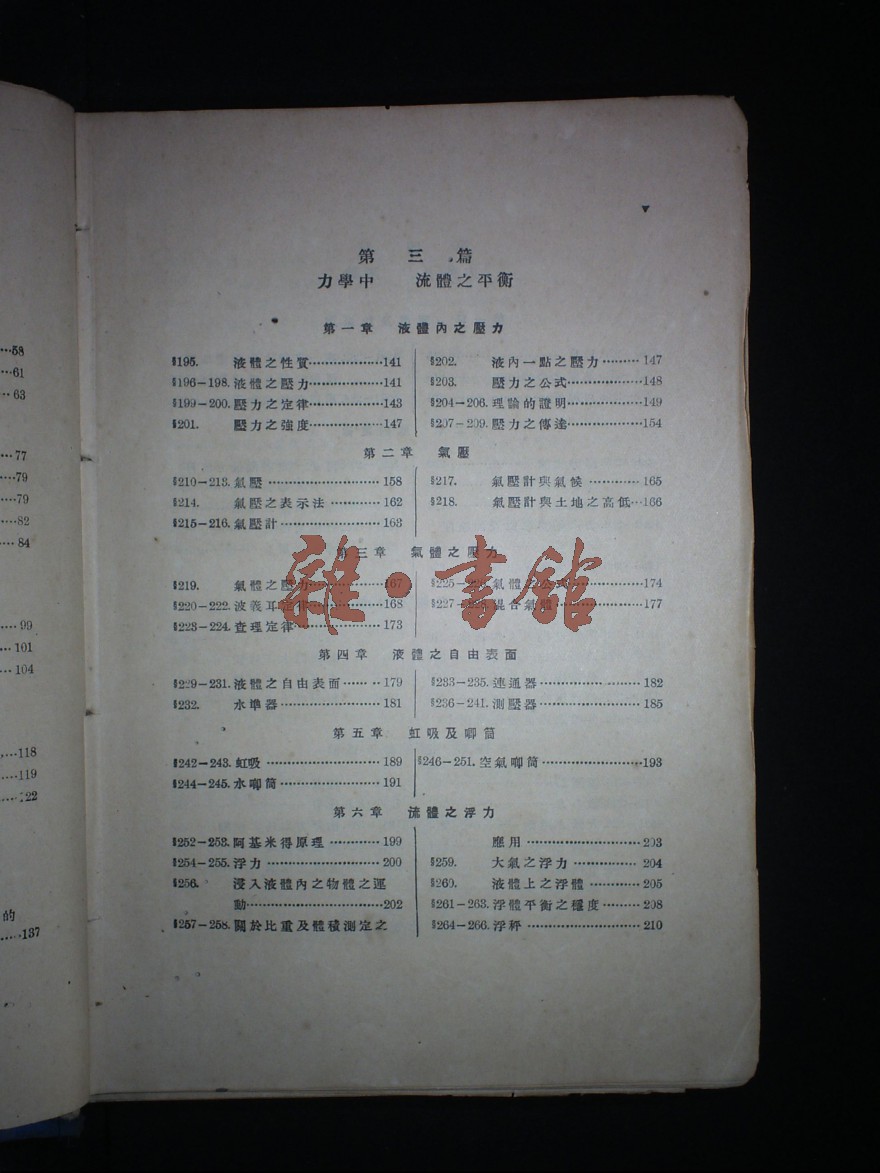 …58
…61
…63
…77
…79
…79
…82
…84
…99
…101
…104
…118
…119
…122
的
…137
第三篇
力學中 流體之平衡
第一章 液體內之壓力
§195. 液體之性質………………141
§196-198. 液體之壓力……………141
§199-200. 壓力之定律……………143
§201. 壓力之強度………………147
§202. 液內一點之壓力………147
§203. 壓力之公式………………148
§204-206. 理論的證明……………149
§207-209. 壓力之傳達……………154
第二章 氣壓
§210-213. 氣壓……………………158
§214. 氣壓之表示法…………162
§215-216. 氣壓計…………………163
§217. 氣壓計與氣候…………165
§218. 氣壓計與土地之高低…166
第三章 氣體之壓力
§219. 氣體之壓力………………167
§220-222. 波義耳定律……………168
§223-224. 查理定律………………173
§225- 氣體 公式………………174
§227- 混合氣體………………177
第四章 液體之自由表面
§229-231. 液體之自由表面………179
§232. 水準器……………………181
§233-235. 連通器…………………182
§236-241. 測壓器…………………185
第五章 虹吸及唧筒
§242-243. 虹吸……………………189
§244-245. 水唧筒…………………191
§246-251. 空氣唧筒………………193
第六章 流體之浮力
§252-253. 阿基米得原理…………199
§254-255. 浮力……………………200
§256. 浸入液體內之物體之運
動……………………………202
§257-258. 關於比重及體積測定之
應用…………………………203
§259. 大氣之浮力………………204
§260. 液體上之浮體…………205
§261-263. 浮體平衡之穩度………208
§264-266. 浮秤……………………210
雜·書館